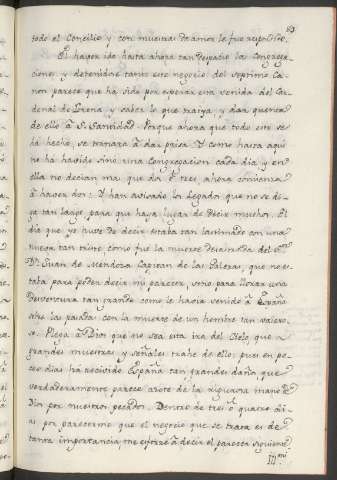 todo el Concilio y con muestras de amor le fue respondido.
El haver ido hasta ahora tan despacio las Congrega-
ciones, y detenidose tanto este negocio del septimo Ca-
non parece que ha sido por esperar esta venida del Car-
denal de Lorena, y saber lo que traiya, y dar quenta
de ello á S. Santidad. Porque ahora que todo esto se
ha hecho, se tornará á dar priesa. Y como hasta aqui
no ha havido sino una Congregacion cada dia, y en
ella no decian mas que dos ó tres, ahora comienza
á haver dos: Y han avisado los Legados que no se di-
ga tan largo, para que haya lugar de decir muchos. El
dia que yo huve de decir estaba tan lastimado con una
nueva tan triste como fue la muerte desastrada del
Dn. Juan de Mendoza Capitan de las Galeras, que no es-
taba para poder decir mi parecer, sino para llorar una
desventura tan grande como le havia venido á España
tras las pasadas con la muerte de un hombre tan valero-
so. Plega á Dios que no sea esta ira del Cielo, que
grandes muestras y señales trahe de ello; pues en po-
cos dias ha recivido España tan grandes daños que
verdaderamente parece azote de la rigurosa mano de
Dios por nuestros pecados. Dentro de tres ó quatro di-
as por parecerme que el negocio que se trata es de
tanta importancia, me esforzé á decir el parecer siguiente